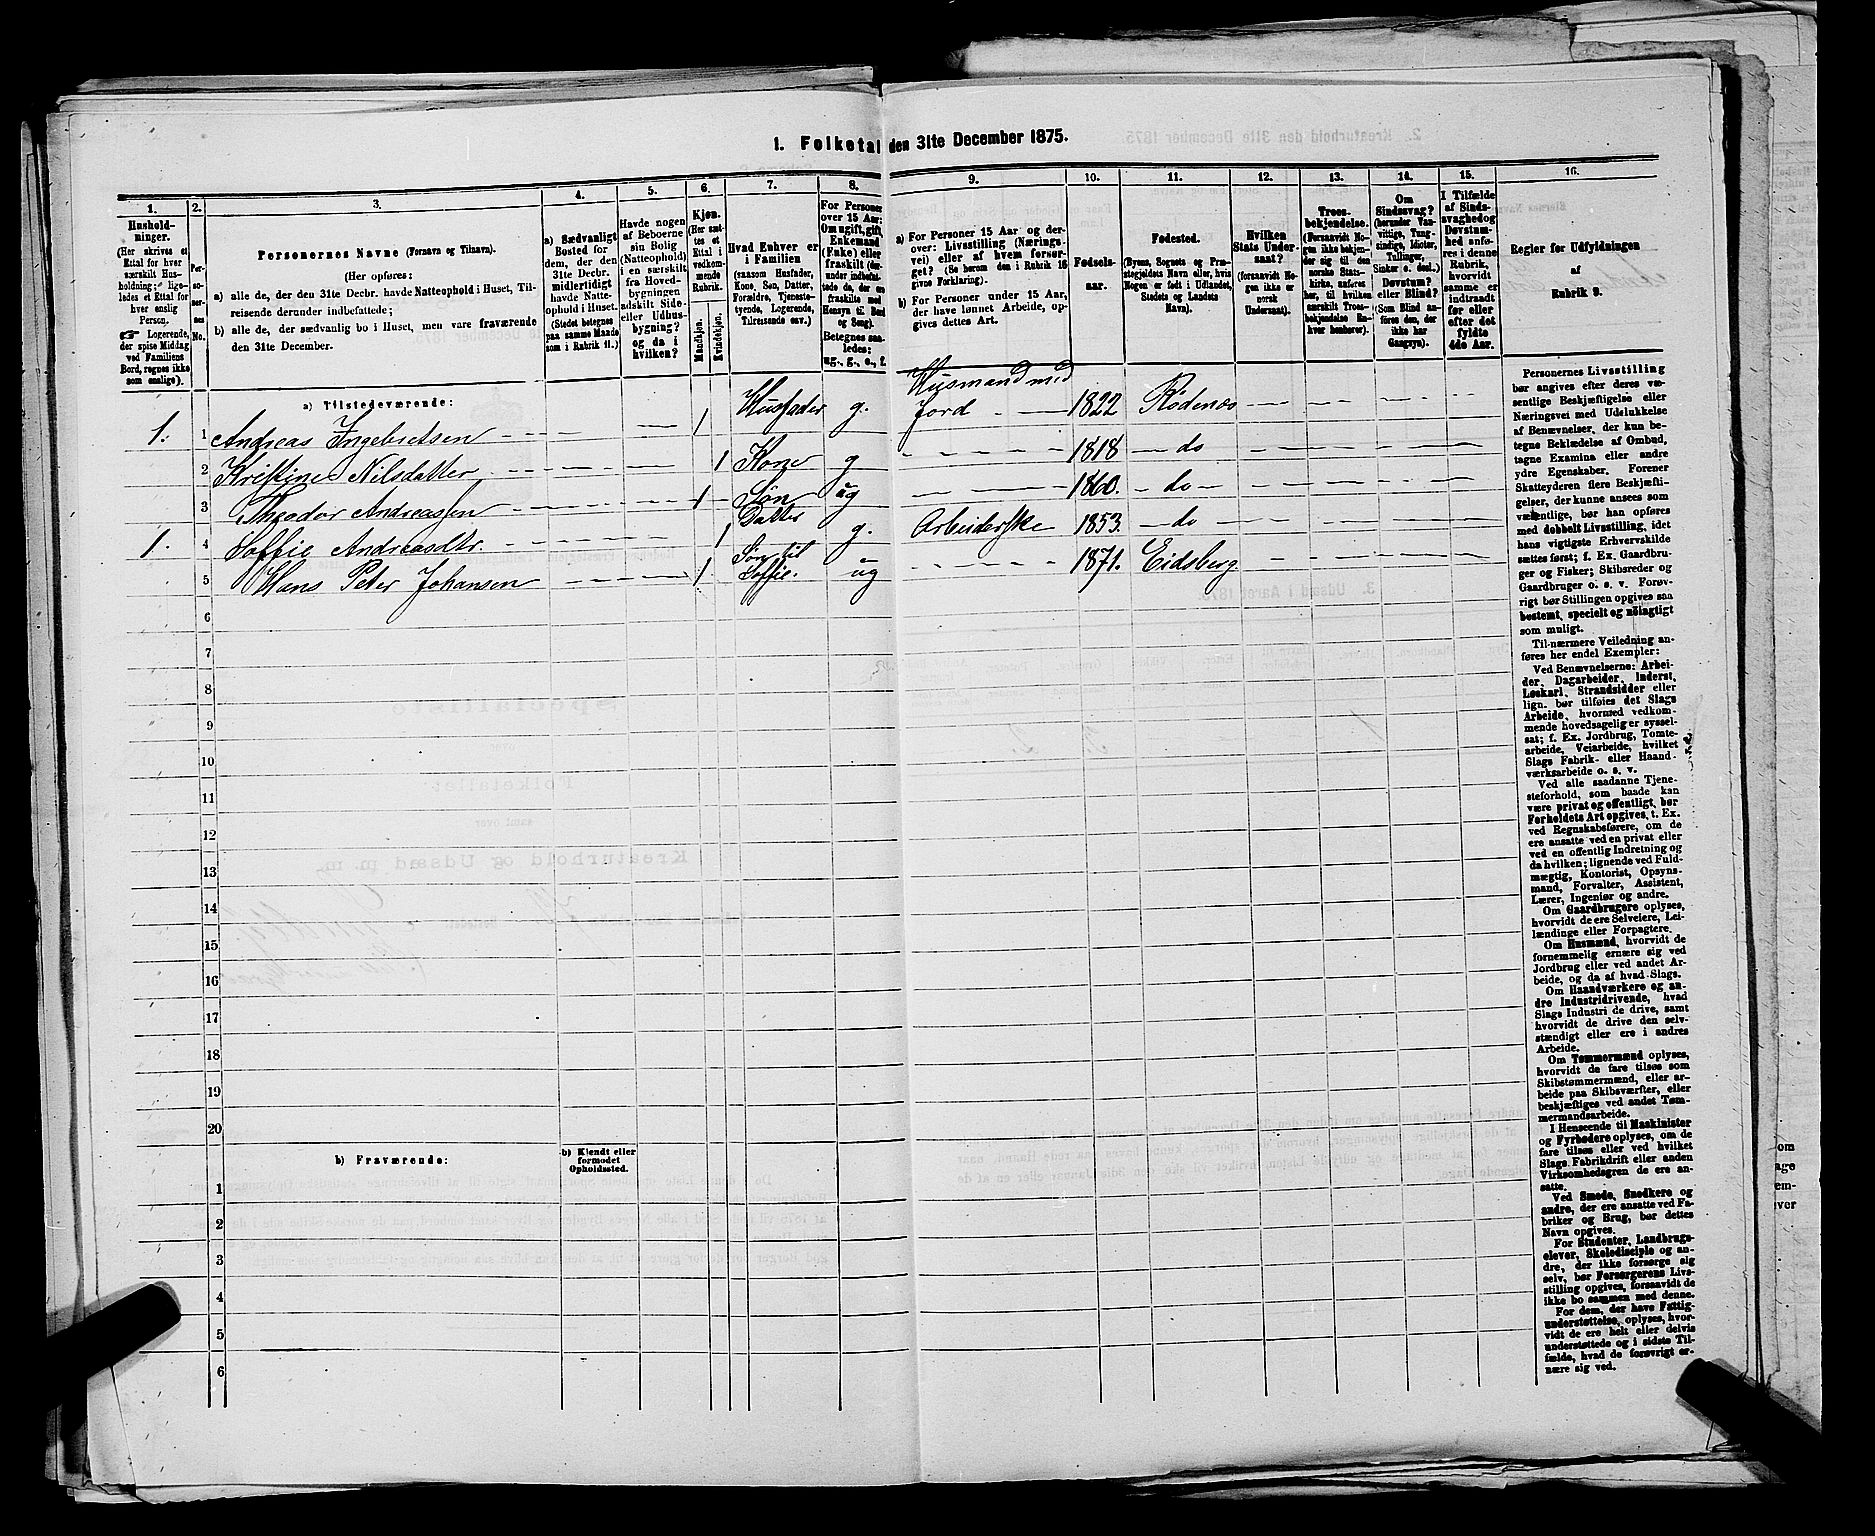 1. Folketal den 31te December 1875.
1. 2. 3. 4. 5. 6. 7. 8. 9. 10. 11. 12. 13. 14. 15. 16.
Husholdninger.
(Her skrives et
Ettal for hver
særskilt Husholdning;
ligeledes et Ettal for
hver enslig
Person.
Logerende,
der spise Middag
ved Familiens
Bord, regnes ikke
som enslige).
Personernes No.
Personernes Navne (Fornavn og Tilnavn).
(Her opføres:
a) alle de, der den 31te Decbr. havde Natteophold i Huset, Tilreisende derunder indbefattede;
b) alle de, der sædvanlig bo i Huset, men vare fraværende
den 31te December.
a) Sædvanligt
Bosted for
dem, der den
31te Decbr.
midlertidigt
havde Natteophold i Huset.
(Stedet betegnes
paa samme Maade
som i Rubrik 11.)
Havde nogen
af Beboerne
sin Bolig
(Natteophold)
i en særskilt
fra Hovedbygningen
adskilt Side-
eller Udhusbygning?
og da i
hvilken?
Kjøn.
(Her sættes et
Ettal i
vedkommende
Rubrik.
Mandkjøn. Kvindekjøn.
Hvad Enhver er
i Familien
(saasom Husfader,
Kone, Søn, Datter,
Forældre, Tjenestetyende, Logerende,
Tilreisende osv.)
For Personer
over 15 Aar:
Om ugift, gift,
Enkemand
(Enke) eller
fraskilt
Betegnes saaledes:
ug., g., e., f.
a) For Personer 15 Aar og derover: Livsstilling (Næringsvei) eller af hvem forsørget? (Se herom den i Rubrik 16
givne Forklaring).
b) For Personer under 15 Aar,
der have lønnet Arbeide, opgives dettes Art.
Fødselsaar.
Fødested.
(Byens, Sognets og Præstegjeldets Navn eller, hvis
Nogen er født i Udlandet,
Stedets og Landets
Navn).
Hvilken
Stats Undersaat?
(forsaavidt Nogen ikke er
norsk
Undersaat).
Troesbekjendelse.
(Forsaavidt Nogen ikke bekjender sig til den
norske Statskirke, anføres
her, til hvilken
særskilt Troesbekjendelse Enhver henhører).
Om
Sindssvag?
(herunder Vanvittige, Tungsindige, Idioter,
Tullinger,
Sinker o. desl.)
Døvstum?
eller Blind?
(Som Blind anføres den, der
ikke har
Gangsyn).
I Tilfælde
af Sindssvaghed og
Døvstumhed anføres i denne
Rubrik,
hvorvidt
samme er
indtraadt
før eller
efter det
fyldte
4de Aar.
Regler for Udfyldningen
af
Rubrik 9.
a) Tilstedeværende:
1. 1 Andreas Ingebretsen 1 Husfader g. Husmand med Jord 1822 Rødenæs
2 Kristine Nilsdatter 1 Kone g 1818 do
3 Theodor Andreassen 1 Søn ug 1860. do
1. 4 Soffie Andreasdtr. 1 Datter g. Arbeiderske 1853. do
5 Hans Peter Johansen 1 Søn til Soffie. ug 1871. Eidsberg.
6
7
8
9
10
11
12
13
14
15
16
17
18
19
20
b) Fraværende:
b) Kjendt eller
formodet
Opholdssted.
1
2
3
4
5
6
Personernes Livsstilling
bør angives efter deres væsentlige Beskjæftigelse eller
Næringsvei med Udelukkelse
af Benævnelser, der kun betegne Beklædelse af Ombud,
tagne Examina eller andre
ydre Egenskaber. Forener
Skatteyderen flere Beskjæftigelser, der kunne ansees som
væsentlige, bør han opføres
med dobbelt Livsstilling, idet
hans vigtigste Erhvervskilde
sættes først; f. Ex. Gaardbruger og Fisker; Skibsreder og
Gaardbruger o. s. v. Forøvrigt bør Stillingen opgives saa
bestemt, specielt og nøiagtigt
som muligt.
Til nærmere Veiledning anføres her endel Exempler:
Ved Benævnelserne: Arbeider, Dagarbeider, Inderst,
Løskarl, Strandsidder eller
lign. bør tilføies det Slags
Arbeide, hvormed vedkommende hovedsagelig er sysselsat; f. Ex. Jordbrug, Tomtearbeide, Veiarbeide, hvilket
Slags Fabrik- eller Haandværksarbeide o. s. v.
Ved alle saadanne Tjenesteforhold, som baade kan
være privat og offentligt, bør
Forholdets Art opgives, t. Ex.
ved Regnskabsførere, om de
ere ansatte ved en privat eller
ved en offentlig Indretning og
da hvilken; lignende ved Fuldmægtig, Kontorist, Opsynsmand, Forvalter, Assistent,
Lærer, Ingeniør og andre.
Om Gaardbrugere oplyses,
hvorvidt de ere Selveiere, Leilændinge eller Forpagtere.
Om Husmænd, hvorvidt de
fornemmelig ernære sig ved
Jordbrug eller ved andet Arbeide, og da af hvad Slags.
Om Haandværkere og andre Industridrivende, hvad
Slags Industri de drive, samt
hvorvidt de drive den selvstændigt eller ere i andres
Arbeide.
Om Tømmermænd oplyses,
hvorvidt de fare tilsøs som
Skibstømmermænd, eller arbeide paa Skibsværfter, eller
beskjæftiges ved andet Tømmermandsarbeide.
I Henseende til Maskinister
og Fyrbødere oplyses, om de
fare tilsøs eller ved hvilket
Slags Fabrikdrift eller anden
Virksomhedsgren de ere ansatte.
Ved Smede, Snedkere og
andre, der ere ansatte ved Fabriker og Brug, bør dettes
Navn opgives.
For Studenter, Landbrugselever, Skoledisciple og andre, der ikke forsørge sig
selv, bør Forsørgerens Livsstilling opgives, forsaavidt de
ikke bo sammen med denne.
For dem, der have Fattigunderstøttelse, oplyses, hvorvidt de ere helt eller delvis
understøttede og i sidste Tilfælde, hvad de forøvrigt ernære sig ved.